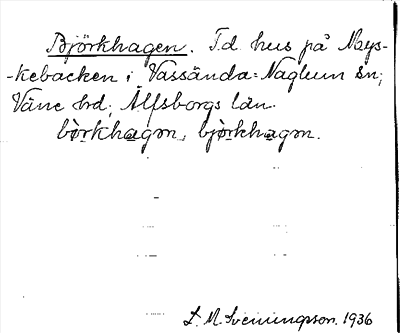 Björkhagen. F.d. hus på Nays-
-kebacken i Vassända-Naglum sn,
Väne hd, Älfsborgs län.
bjo̱rkhagɷn, bjo̱rkhagɷn.
S. M. Sveningson. 1936